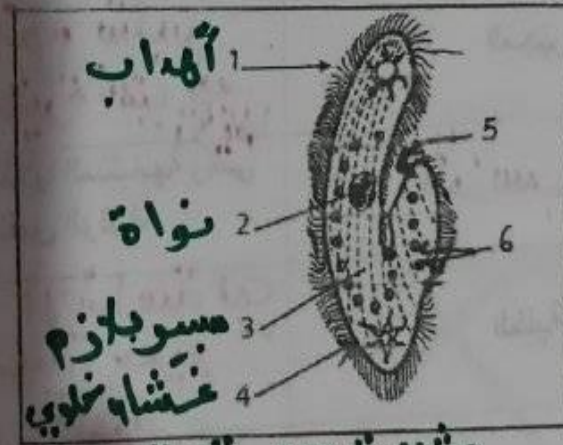 أهداب 1
5
نواة 2
6
سيتوبلازم 3
غشاء خلوي 4